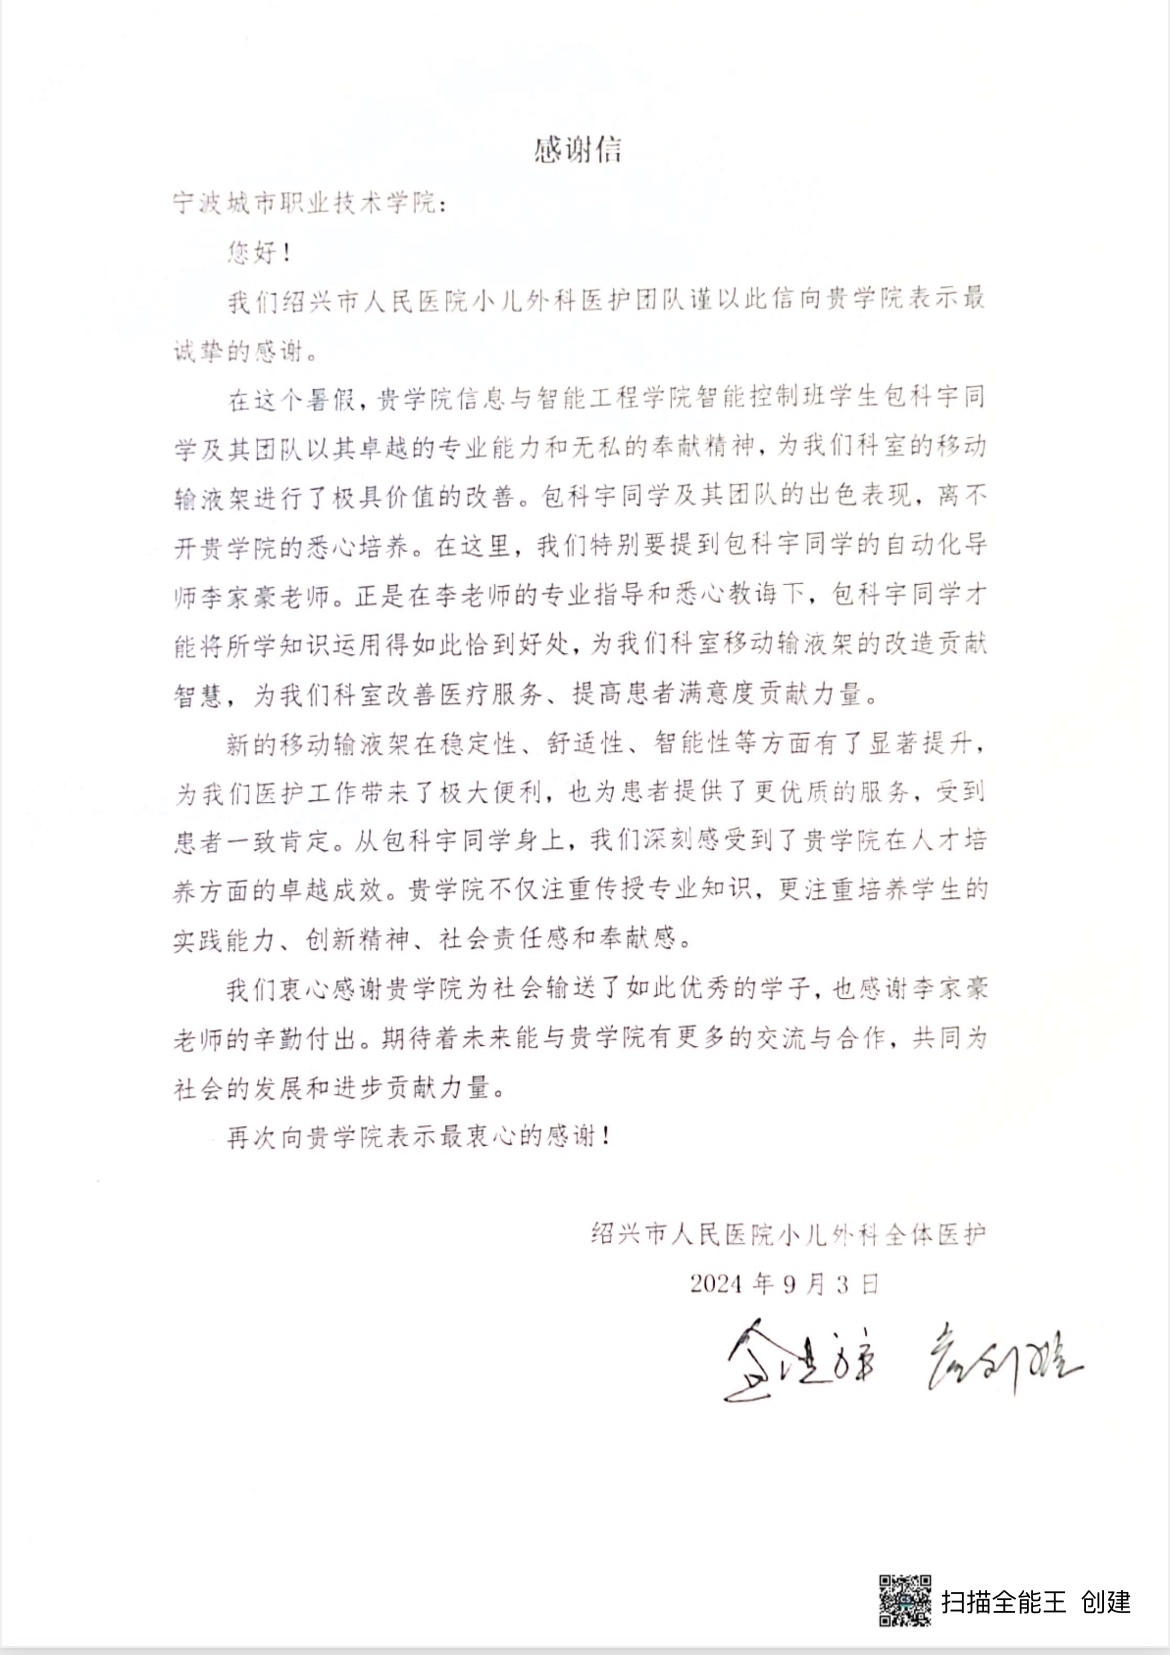 感谢信
宁波城市职业技术学院：
您好！
我们绍兴市人民医院小儿外科医护团队谨以此信向贵学院表示最
诚挚的感谢。
在这个暑假，贵学院信息与智能工程学院智能控制班学生包科宇同
学及其团队以其卓越的专业能力和无私的奉献精神，为我们科室的移动
输液架进行了极具价值的改善。包科宇同学及其团队的出色表现，离不
开贵学院的悉心培养。在这里，我们特别要提到包科宇同学的自动化导
师李家豪老师。正是在李老师的专业指导和悉心教诲下，包科宇同学才
能将所学知识运用得如此恰到好处，为我们科室移动输液架的改造贡献
智慧，为我们科室改善医疗服务、提高患者满意度贡献力量。
新的移动输液架在稳定性、舒适性、智能性等方面有了显著提升，
为我们医护工作带来了极大便利，也为患者提供了更优质的服务，受到
患者一致肯定。从包科宇同学身上，我们深刻感受到了贵学院在人才培
养方面的卓越成效。贵学院不仅注重传授专业知识，更注重培养学生的
实践能力、创新精神、社会责任感和奉献感。
我们衷心感谢贵学院为社会输送了如此优秀的学子，也感谢李家豪
老师的辛勤付出。期待着未来能与贵学院有更多的交流与合作，共同为
社会的发展和进步贡献力量。
再次向贵学院表示最衷心的感谢！
绍兴市人民医院小儿外科全体医护
2024 年 9 月 3 日
扫描全能王 创建